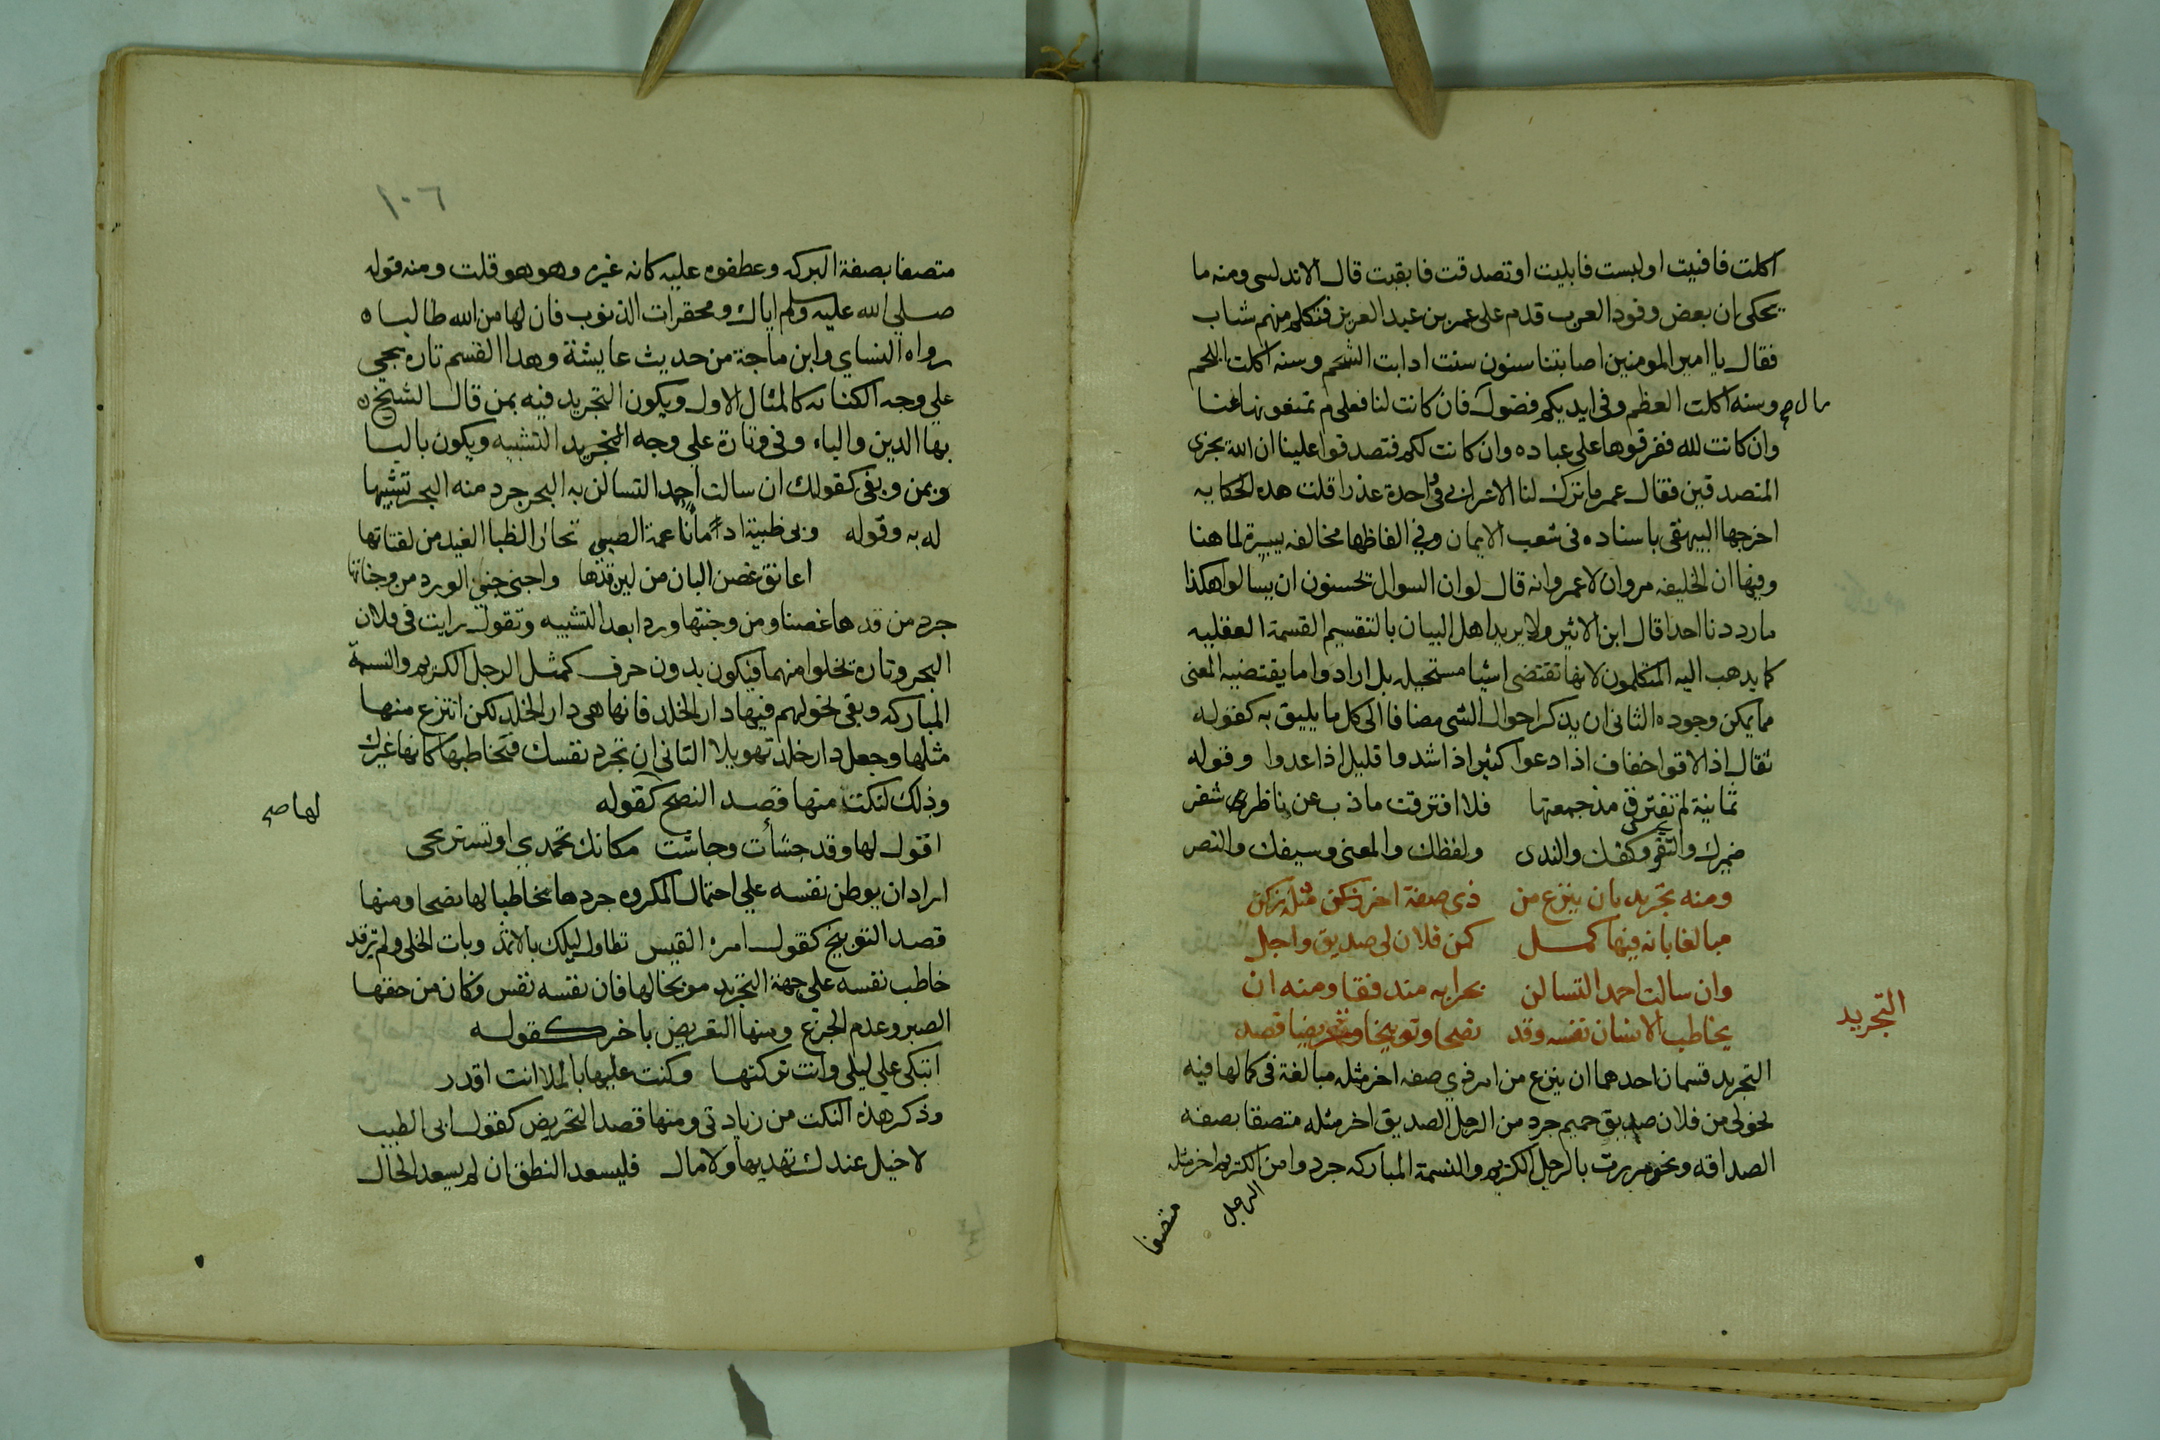 اكلت فافنيت او لبست فابليت او تصدقت فابقيت قال الاندلسى ومنه ما
يحكى ان بعض وفود العرب قدم على عمر بن عبد العزيز فتكلم منهم شاب
فقال يا امير المومنين اصابتنا سنون سنت اذابت الشحم وسنه اكلت اللحم
وسنه اكلت العظم وفى ايديكم فضول فان كانت لنا فعلى م تمنعونها عنا
مال صح
وان كانت لله ففرقوها على عباده وان كانت لكم فتصدقوا علينا ان الله يجزى
المتصدقين فقال عمر ما ترك لنا الاعرابى فى واحدة عذرا قلت هده الحكايه
اخرجها البيهقى باسناده فى شعب الايمان وفى الفاظها مخالفه يسيرة لما هنا
وفيها ان الخليفه مروان لا عمر وانه قال لو ان السوال تحسنون ان يسالوا هكذا
ما رددنا احدا قال ابن الاثير ولا يريد اهل البيان بالتقسيم القسمة العقليه
كما يدهب اليه المتكلمون لانها تقتضى اشيا مستحيله بل ارادوا ما يقتضيه المعنى
مما يمكن وجوده الثانى ان يدكر احوال الشى مضافا الى كل ما يليق به كقوله
ثقال اذا لاقوا خفاف اذا دعوا كثير اذا شدوا قليل اذا عدوا وقوله
ثمانية لم تفترق مذ جمعتها فلا افترقت ما ذب عن ناظر شفر
ضميرك والتقوى وكفك والندى ولفظك والمعنى وسيفك والنصر
ومنه تجريد بان ينزع من ذى صفة اخر زكن مثل زكن
مبالغا بانه فيها كمل كمن فلان لى صديق واجل
وان سالت احمد التسالن بحرا به منه فقا ومنه ان
يخاطب الانسان نفسه وقد نصحا وتوبيخا وتعريضا قصد
التجريد
التجريد قسمان احدهما ان ينزع من امر ذى صفه اخر مثله مبالغة فى كمالها فيه
نحو لى من فلان صديق حميم جرد من الرجل الصديق اخر مثله متصفا بصفه
الصداقه ونحو مررت بالرجل الكريم والنسمة المباركه جردوا من الكريم اخر مثله
الرجل
متصفا
١٠٦
متصفا بصفة البركه وعطفوه عليه كانه غيره وهو هو قلت ومنه قوله
صلى الله عليه وسلم اياك ومحقرات الذنوب فان لها من الله طالبا ه
رواه النساي وابن ماجة من حديث عايشة وهدا القسم تاره يجى
على وجه الكنايه كالمثال الاول ويكون التجريد فيه بمن قال الشيخ
بها الدين والباء وفى وتارة على وجه التجريد التشبيه ويكون بالبا
وبمن وبفى كقولك ان سالت احمد التسالن به البحر جرد منه البحر تشبيها
له به وقوله وبى ظبية ادمانا عمة الصبى تحار الظبا الغيد من لفتاتها
اعانق غصن البان من لين قدها واجنى جنى الورد من وجناتها
جرد من قدها غصنا ومن وجنتها وردا بعد التشبيه وتقول رايت فى فلان
البحر وتارة يخلوا منهما فيكون بدون حرف كمثل الرجل الكريم والنسمة
المباركه وبفى نحو لهم فيها دار الخلد فانها هى دار الخلد لكن انتزع منها
مثلها وجعل دار خلد تهويلا الثانى ان تجرد نفسك فتخاطبها كانها غيرك
وذلك لنكت منها قصد النصح كقوله
لها صح
اقول لها وقد جشأت وجاشت مكانك تحمدى او تستريحى
اراد ان يوطن نفسه على احتمال المكروه جردها مخاطبا لها نصحا ومنها
قصد التوبيخ كقول امره القيس تطاول ليلك بالاثمد وبات الخلى ولم ترقد
خاطب نفسه على جهة التجريد موبخا لها فان نفسه نفس وكان من حقها
الصبر وعدم الجزع ومنها التعريض باخر كقوله
اتبكى على ليلى وانت تركتها وكنت عليها بالملا انت اقدر
وذكر هذه النكت من زيادتى ومنها قصد التحريض كقول ابى الطيب
لا خيل عندك تهديها ولا مال فليسعد النطق ان لم يسعد الحال